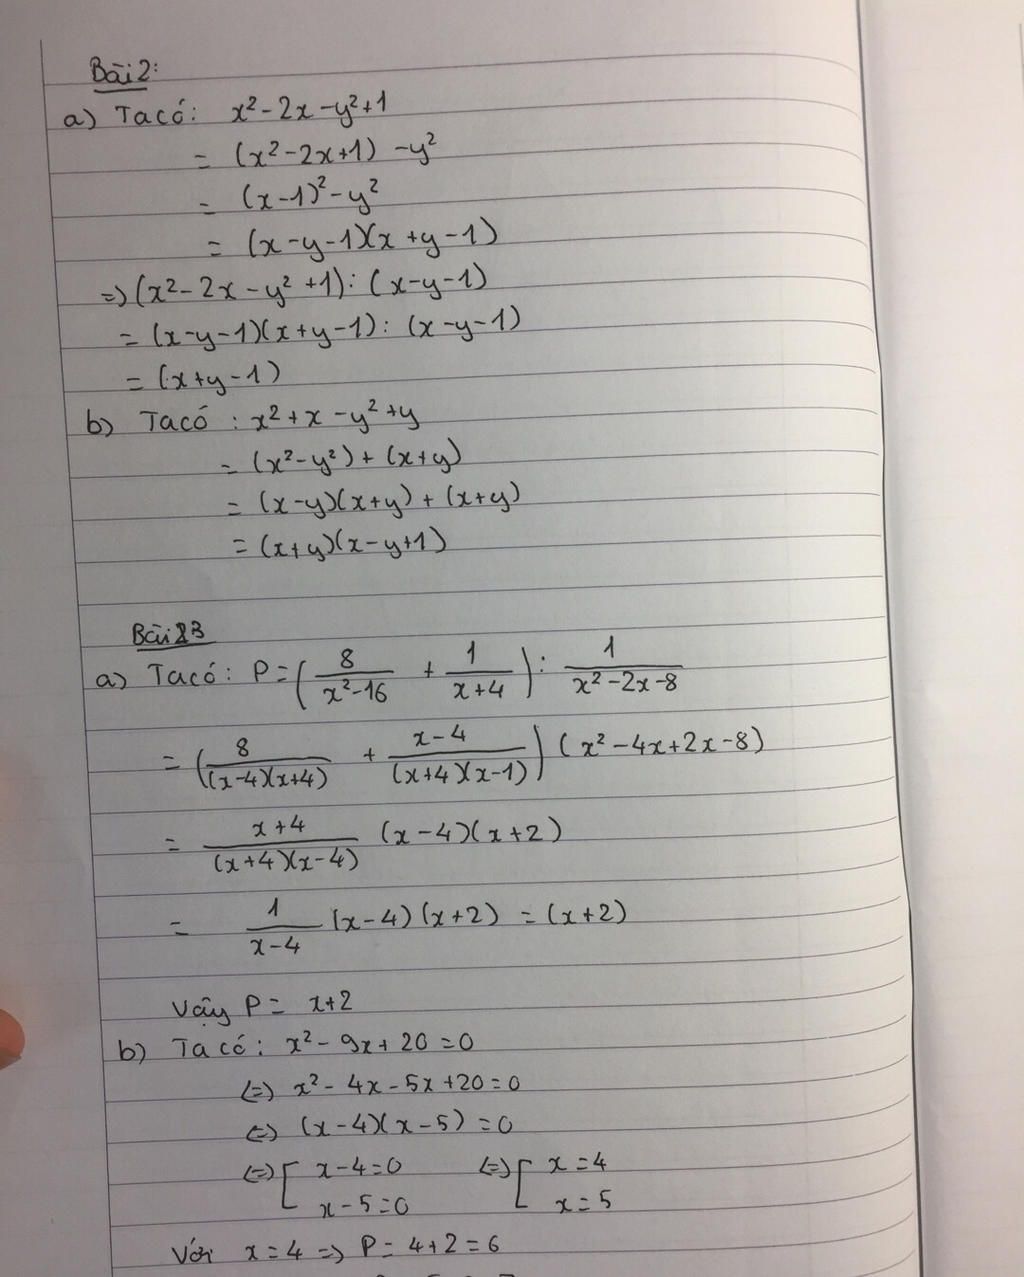 Bài 2:
a) Ta có: x² - 2x - y² + 1
= (x² - 2x + 1) - y²
= (x - 1)² - y²
= (x - y - 1)(x + y - 1)
=> (x² - 2x - y² + 1) : (x - y - 1)
= (x - y - 1)(x + y - 1) : (x - y - 1)
= (x + y - 1)
b) Ta có : x² + x - y² + y
= (x² - y²) + (x + y)
= (x - y)(x + y) + (x + y)
= (x + y)(x - y + 1)
Bài 3
a) Ta có: P = (8/(x² - 16) + 1/(x + 4)) : 1/(x² - 2x - 8)
= (8/((x - 4)(x + 4)) + (x - 4)/((x + 4)(x - 1))) (x² - 4x + 2x - 8)
= (x + 4)/((x + 4)(x - 4)) (x - 4)(x + 2)
= 1/(x - 4) (x - 4)(x + 2) = (x + 2)
Vậy P = x + 2
b) Ta có: x² - 9x + 20 = 0
(=) x² - 4x - 5x + 20 = 0
(=) (x - 4)(x - 5) = 0
(=) [ x - 4 = 0 (=) [ x = 4
x - 5 = 0 x = 5
Với x = 4 => P = 4 + 2 = 6